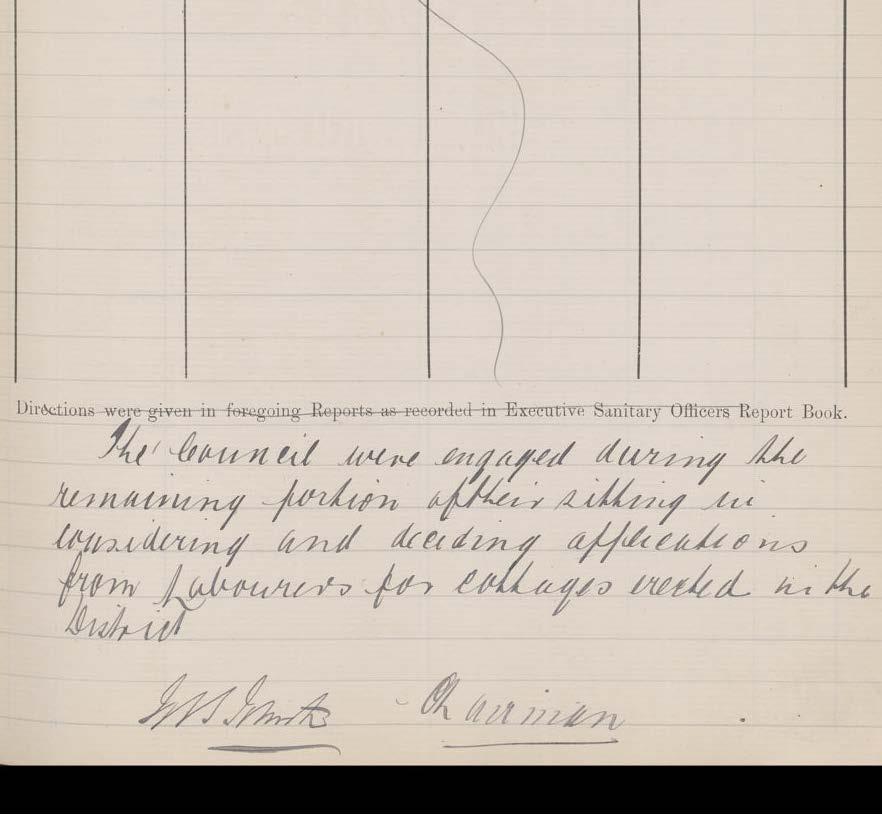 Directions were given in foregoing Reports as recorded in Executive Sanitary Officers Report Book.
The Council were engaged during the
remaining portion of their sitting in
considering and deciding applications
from Labourers for cottages erected in the
District
Chairman